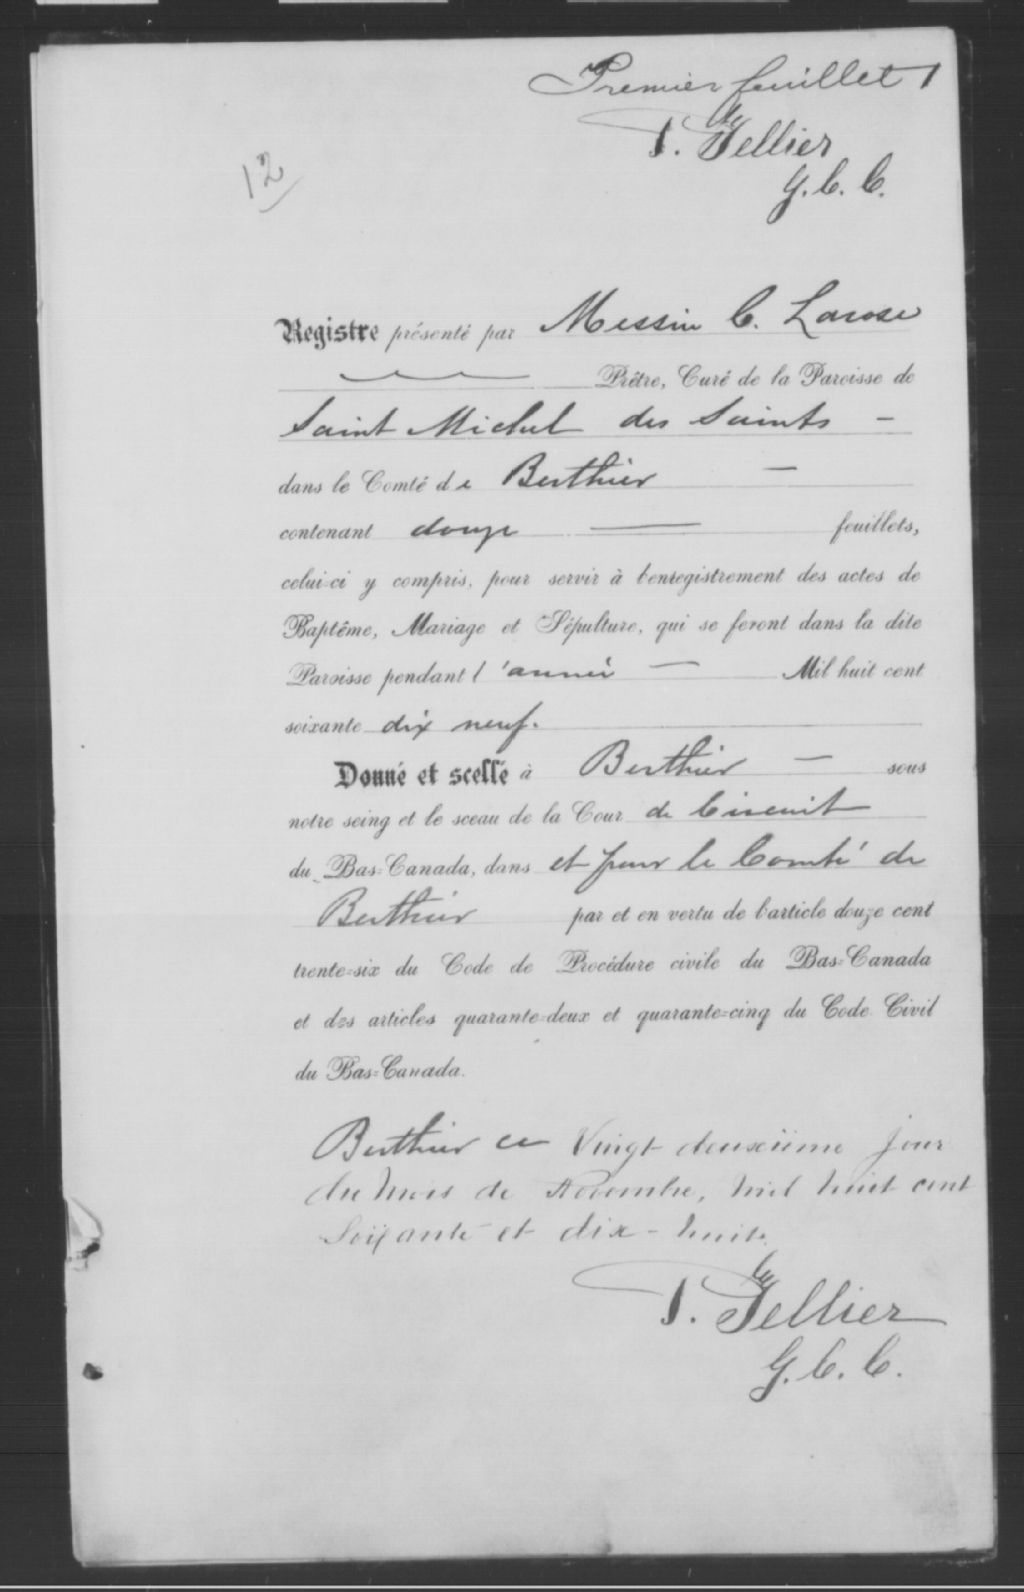 Premier feuillet 1
P. Tellier
G. C. C.
12
Registre présenté par Messire C. Larose
Prêtre, Curé de la Paroisse de
Saint Michel des Saints -
dans le Comté de Berthier -
contenant douze - feuillets,
celui-ci y compris, pour servir à l'enregistrement des actes de
Baptême, Mariage et Sépulture, qui se feront dans la dite
Paroisse pendant l'année - Mil huit cent
soixante dix neuf.
Donné et scellé à Berthier - sous
notre seing et le sceau de la Cour de Circuit
du Bas-Canada, dans et pour le Comté de
Berthier par et en vertu de l'article douze cent
trente-six du Code de Procédure civile du Bas-Canada
et des articles quarante-deux et quarante-cinq du Code Civil
du Bas-Canada.
Berthier ce Vingt deuxième jour
du mois de Novembre, mil huit cent
Soixante et dix-huit.
P. Tellier
G. C. C.